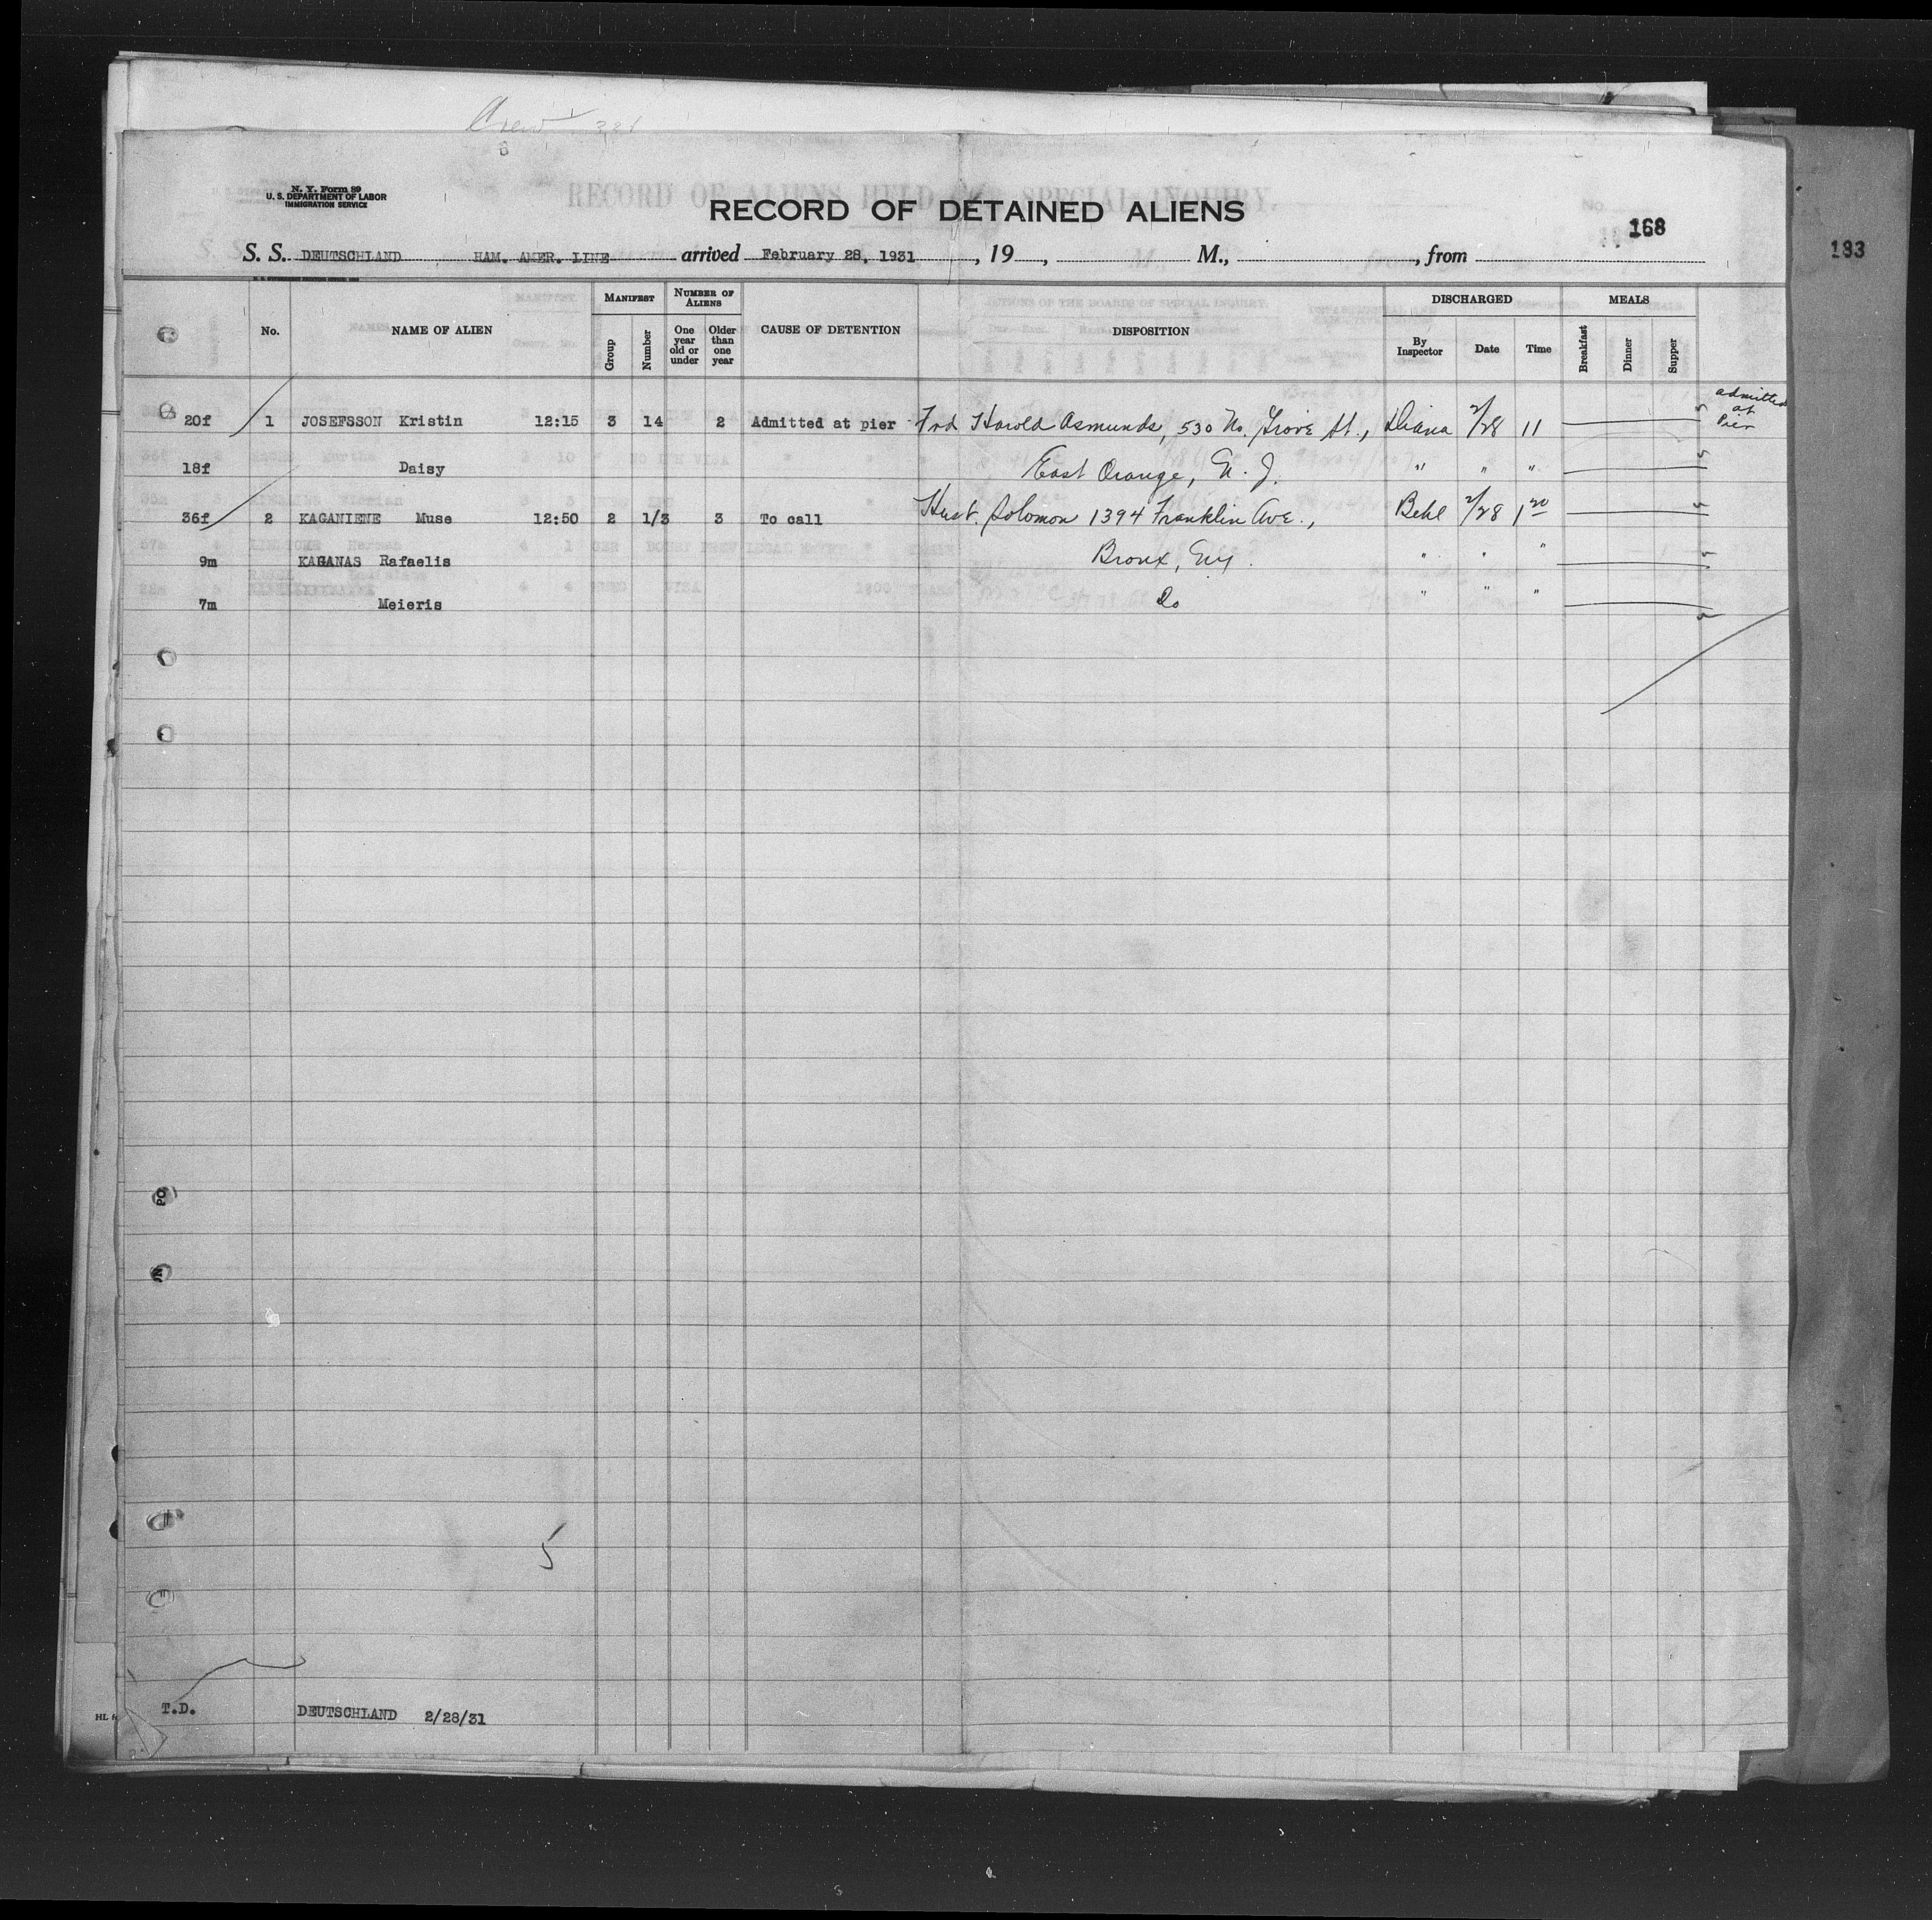 Crew
N. Y. Form 89
U. S. DEPARTMENT OF LABOR
IMMIGRATION SERVICE
RECORD OF ALIENS HELD SPECIAL INQUIRY.
RECORD OF DETAINED ALIENS
168
183
S. S. DEUTSCHLAND HAM. AMER. LINE arrived February 28, 1931, 19, M., , from
No. NAME OF ALIEN MANIFEST Group Number NUMBER OF ALIENS One year old or under Older than one year CAUSE OF DETENTION DISPOSITION DISCHARGED By Inspector Date Time MEALS Breakfast Dinner Supper
admitted at Pier
20f 1 JOSEFSSON Kristin 12:15 3 14 2 Admitted at pier Frd Harold Asmunds, 530 No. Grove St., Diana 2/28 11
18f Daisy East Orange, N. J. " " "
36f 2 KAGANIENE Muse 12:50 2 1/3 3 To call Husb. Solomon 1394 Franklin Ave., Behl 2/28 1 20
9m KAGANAS Rafaelis Bronx, Ny. " " "
7m Meieris Do " " "
PO
5
T.D. DEUTSCHLAND 2/28/31